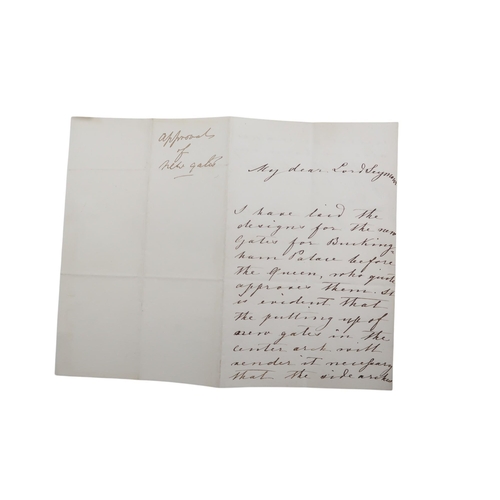 Approval
of
New gates
My dear Lord Seymour
I have laid the
designs for the new
Gates for Bucking
ham Palace before
the Queen, who quite
approves them. It
is evident that
the putting up of
new gates in the
center arch will
render it necessary
that the side arches